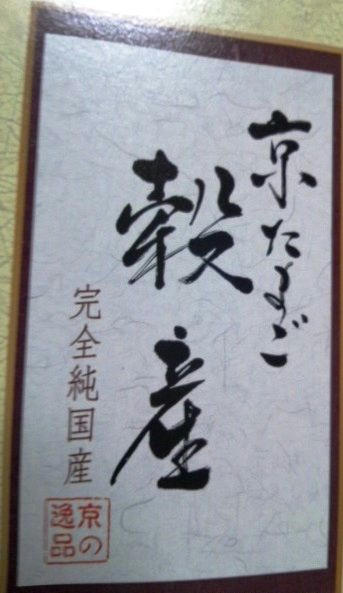 京たまご
穀産
完全純国産
京の
逸品